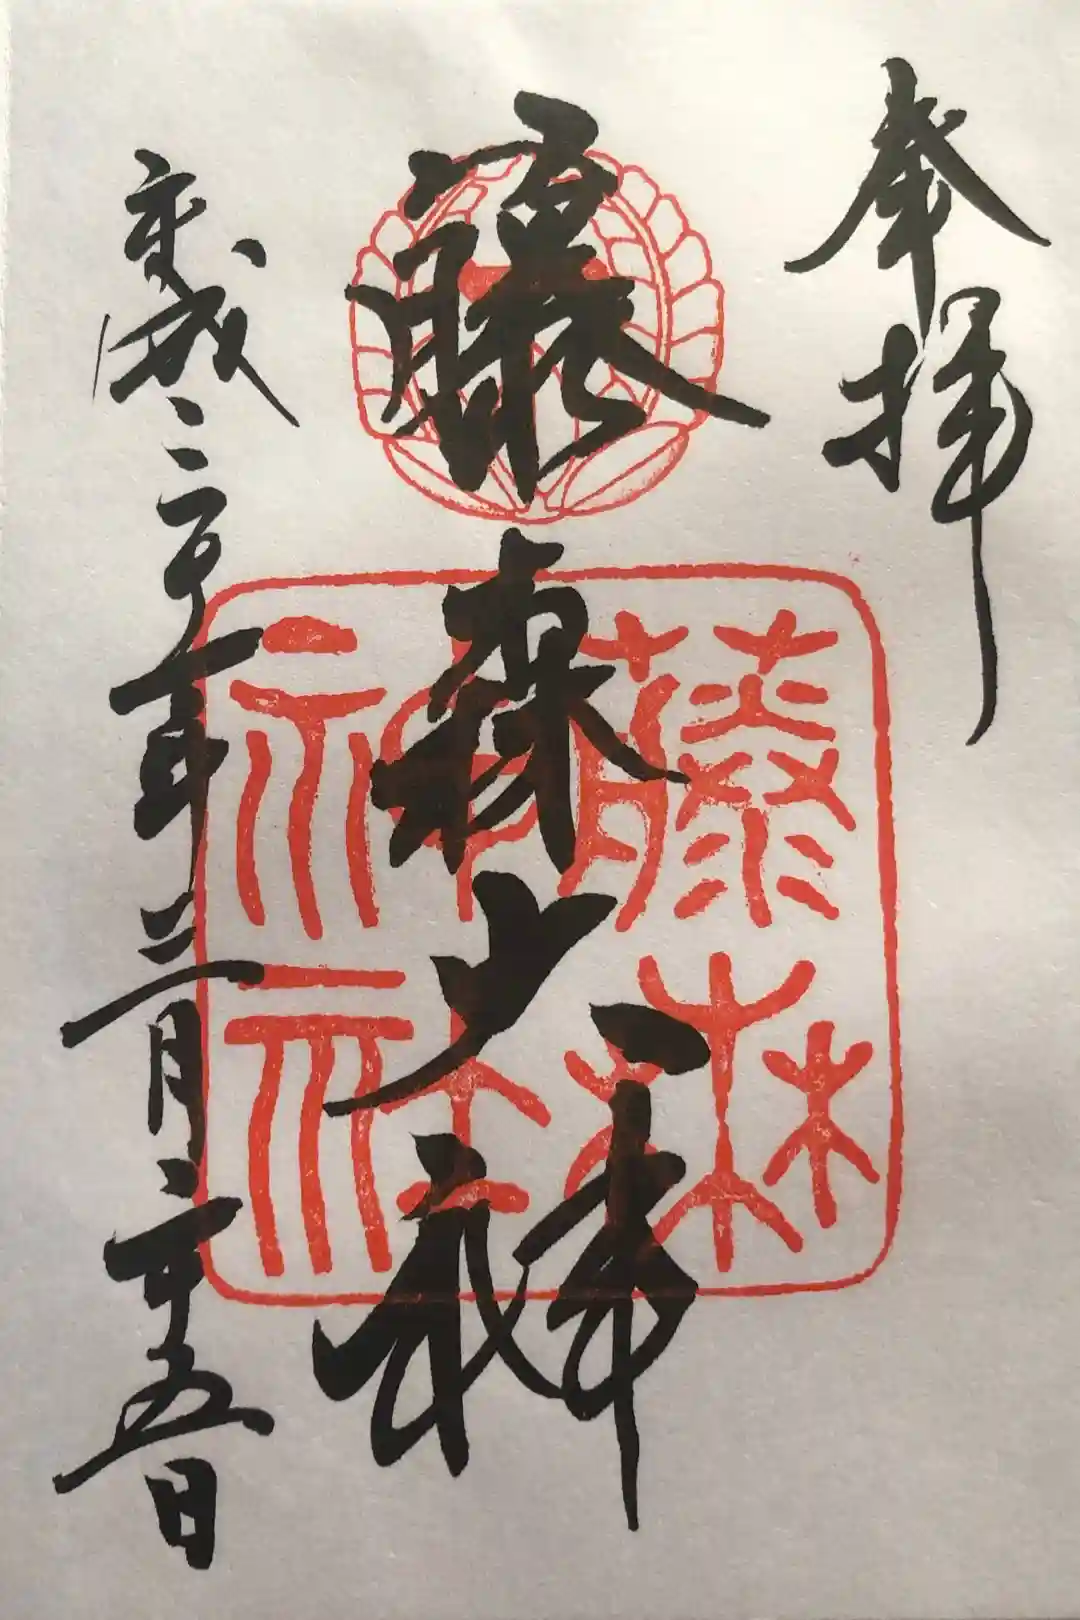 奉拝
藤森神社
平成三十年三月二十五日
藤森
神社